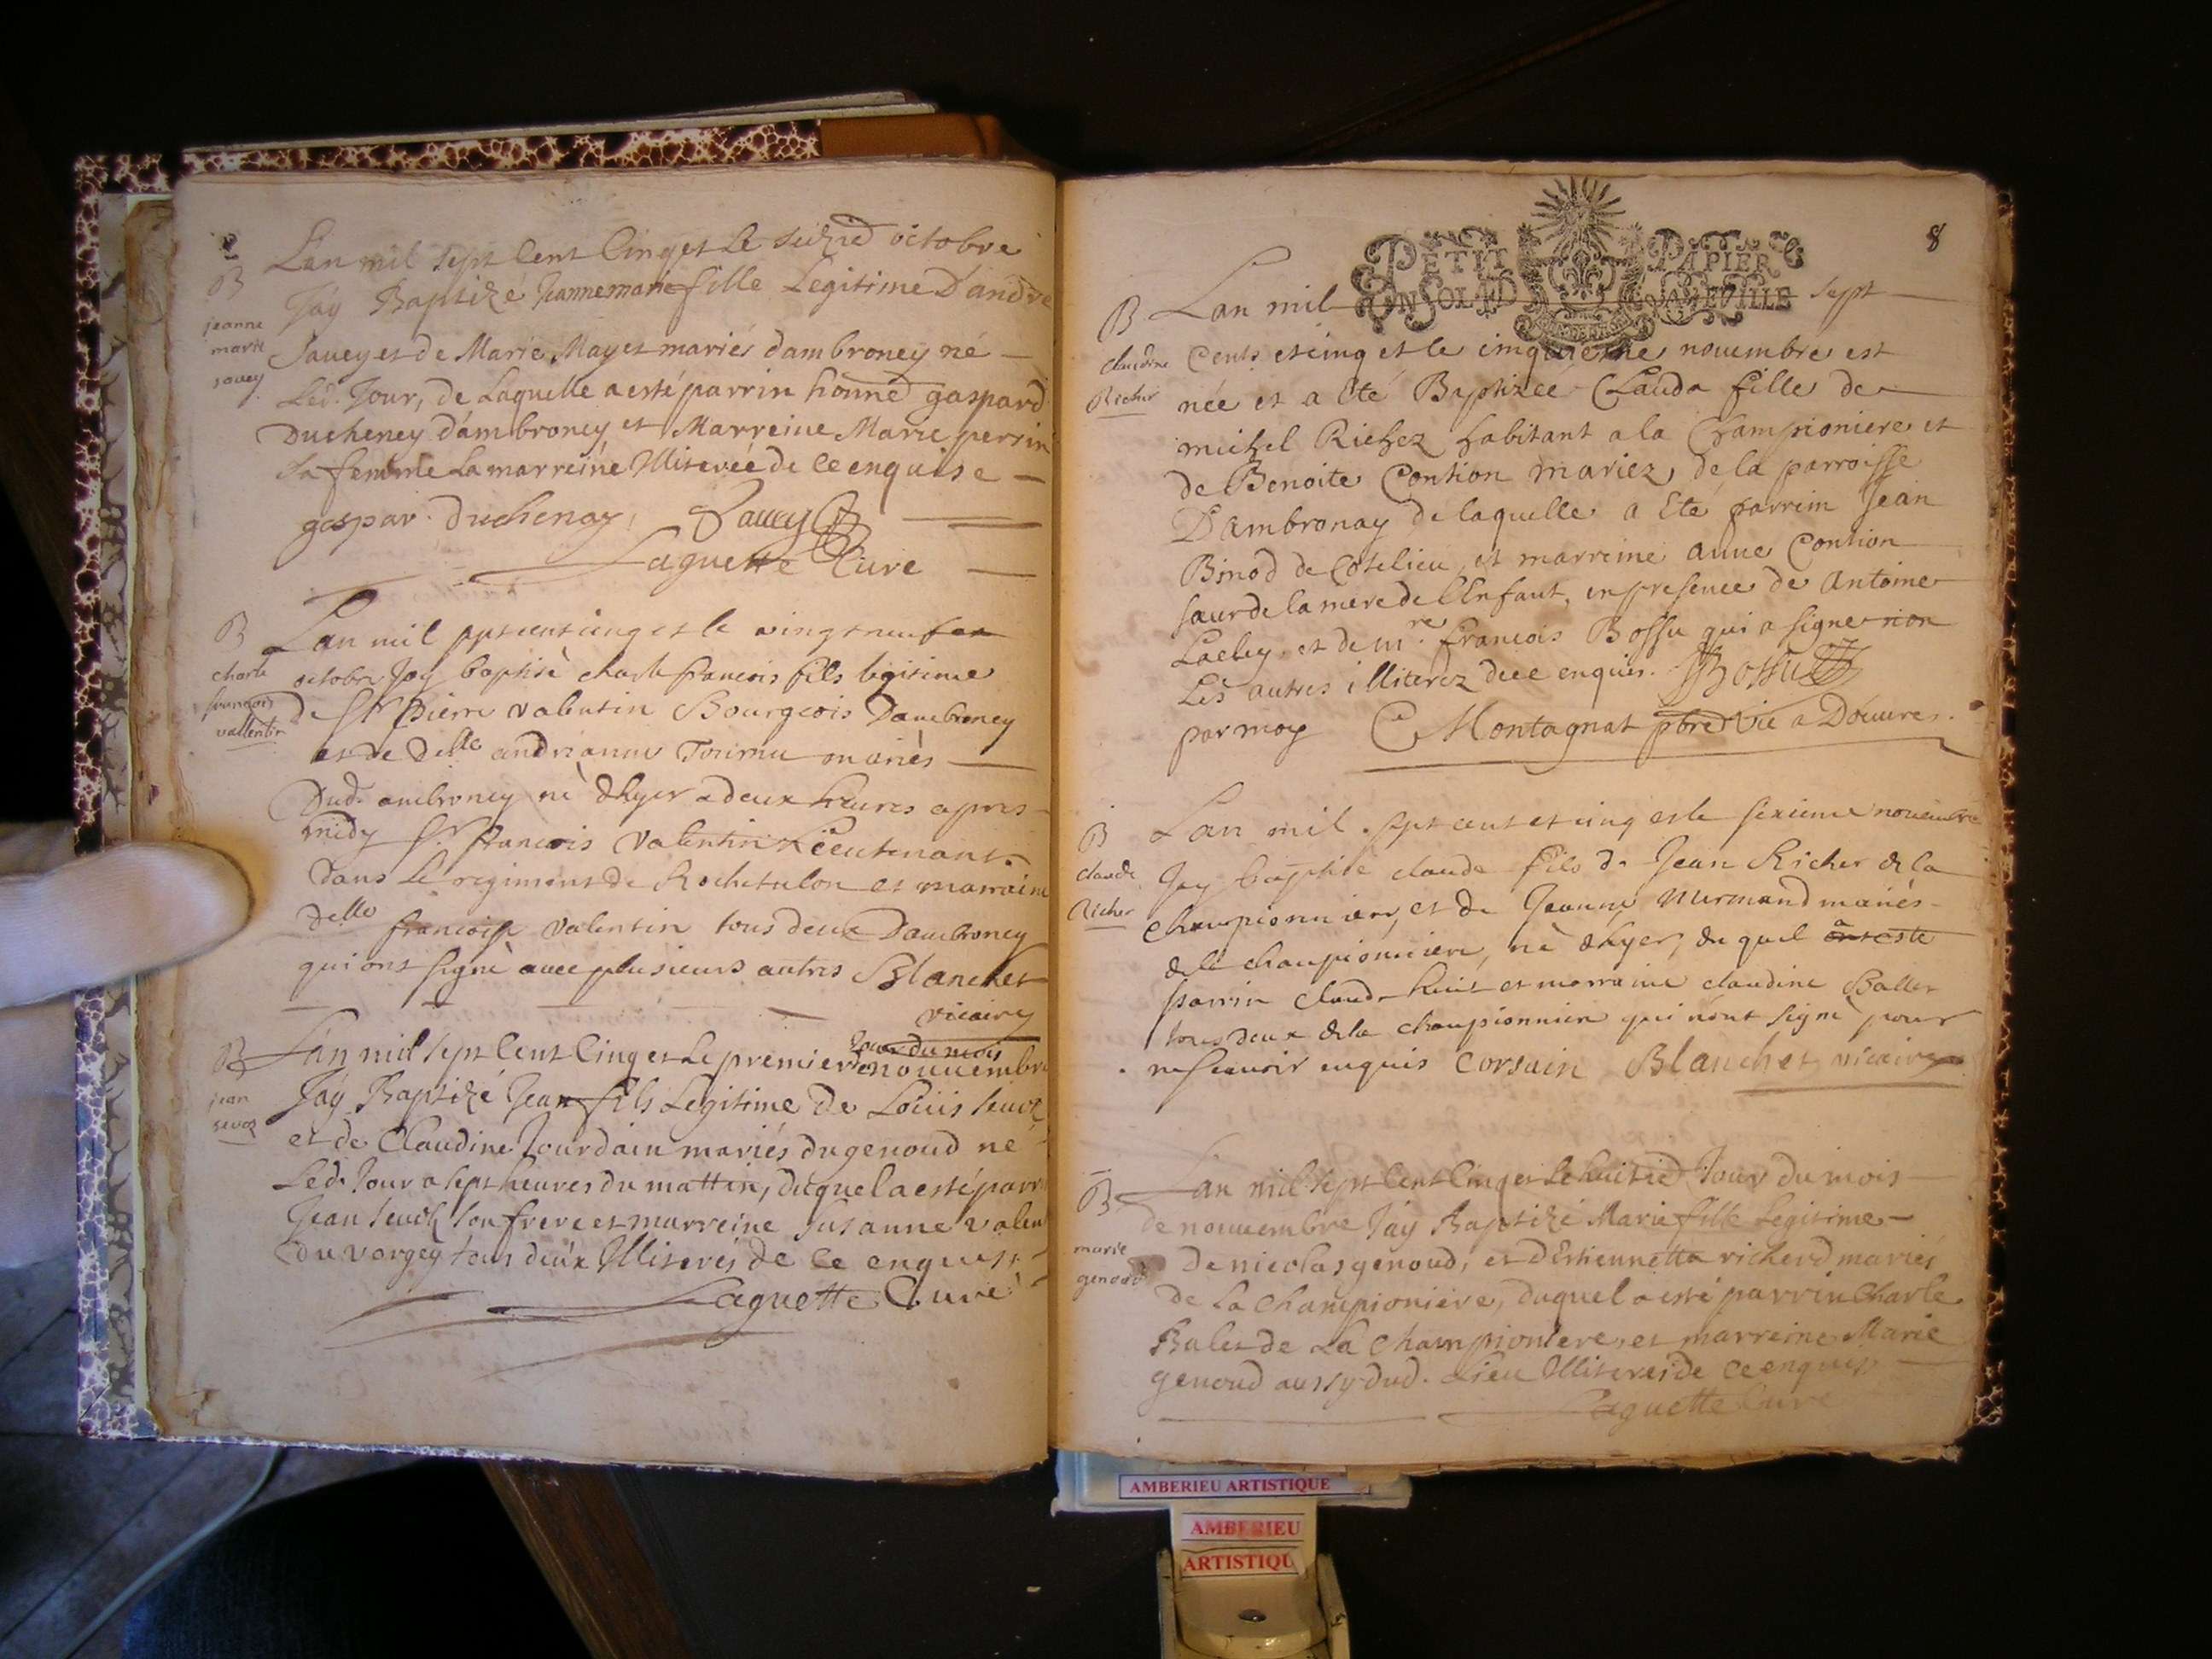 B
jeanne
marie
jovey
Lan mil sept Cent Cinq et Le seizie octobre
Jay Baptizé Jeannemarie fille Legitime Dandre
Jauey et de Marie Mayet mariés dambroney né
Led. Jour, de Laquelle a esté parrin honne gaspard
Ducheney d'ambroney et Marreine Marie perrin
sa femme La marreine Illiterée de Ce enquise
gaspar. duchenay, Jauey
Laguette Cure
B
charle
francois
vallentin
Lan mil sept cent cinq et le vingt neuf
octobre Jay baptisè charle francois fils legitime
de Sr pierre valentin Bourgeois Dambroney
et de Delle andrianne Tournu mariès
Dud. ambroney nè dhyer a deux heures apres
midy Sr francois valentin Lieutenant
dans Le regiment de Rochetulon et marraine
delle francoise valentin tous deux Dambroney
qui ont signè avec plusieurs autres Blanchet
vicaire
B
jean
sevoz
Lan mil sept Cent Cinq et Le premier Jour du mois
nouuembre
Jay Baptizé Jean fils Legitime De Loüis Seuoz
et de Claudine Jourdain mariés du genoud né
Led. Jour a sept heures du mattin, duquel a esté parr
Jean Seuoz son frere et marreine Susanne valen
du vorgey tous deux Illiterés de Ce enquis
Laguette Curé
8
PETIT PAPIER
UN SOL LA FEUILLE
B
claudine
Richer
Lan mil sept
Cents et cinq et le cinquieme novembre est
née et a eté Baptizee Clauda fille de
michel Richez habitant a la Championiere et
de Benoite Contion mariez, de la parroisse
D'ambronay de laquelle a Eté parrin Jean
Binod de Cotelieu, et marreine anne Contion
saur de la mere de l'Enfant, en presence de antoine
Lacley et de mre francois Bossu qui a signe non
Les autres illiterez de ce enquis. Bossu
par moy C Montagnat pbre Vic a Douures
B
claude
Richer
Lan mil sept cent et cinq et le sixieme novembre
Jay baptisé claude fils de Jean Richer de la
championniere, et de Jeanne Murmand mariés
de la championniere, nè dhyer, du quel a esté
parrin claude huit et marraine claudine Ballet
tous deux de la championniere qui n'ont signè pour
ne scauoir enquis corsain Blanchet vicaire
B
marie
genoud
Lan mil sept Cent Cinq et Le huitie Jour du mois
de nouuembre Jay Baptizé Marie fille Legitime
De nicolas genoud, et d'Estiennette richerd mariés
de La Championiere, duquel a esté parrin Charle
Balet de La Championiere, et marreine Marie
genoud aussy dud. Lieu Illiteres de Ce enquis
Laguette Curé
AMBERIEU ARTISTIQUE
AMBERIEU
ARTISTIQU